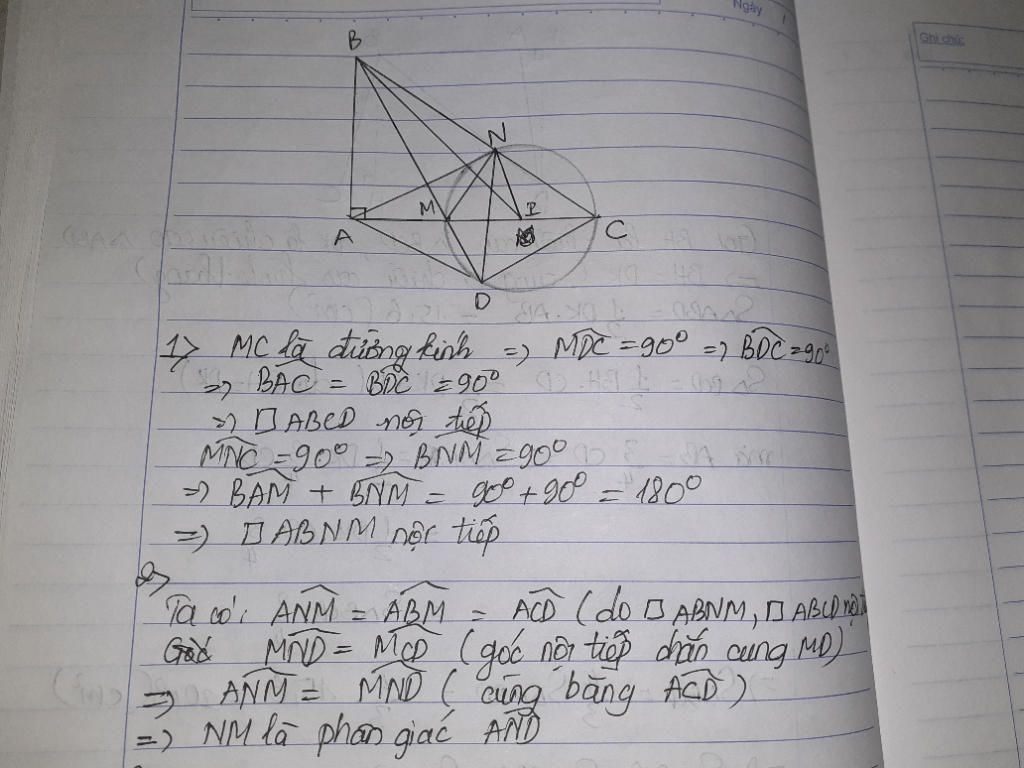 Ngày
Ghi chú
B
N
A
M
I
C
D
1> MC là đường kính => \widehat{MDC} = 90° => \widehat{BDC} = 90°
=> \widehat{BAC} = \widehat{BDC} = 90°
=> □ABCD nội tiếp
\widehat{MNC} = 90° => \widehat{BNM} = 90°
=> \widehat{BAM} + \widehat{BNM} = 90° + 90° = 180°
=> □ABNM nội tiếp
2>
Ta có: \widehat{ANM} = \widehat{ABM} = \widehat{ACD} (do □ABNM, □ABCD nội
\widehat{MND} = \widehat{MCD} (góc nội tiếp chắn cung MD)
=> \widehat{ANM} = \widehat{MND} (cùng bằng \widehat{ACD})
=> NM là phân giác \widehat{AND}